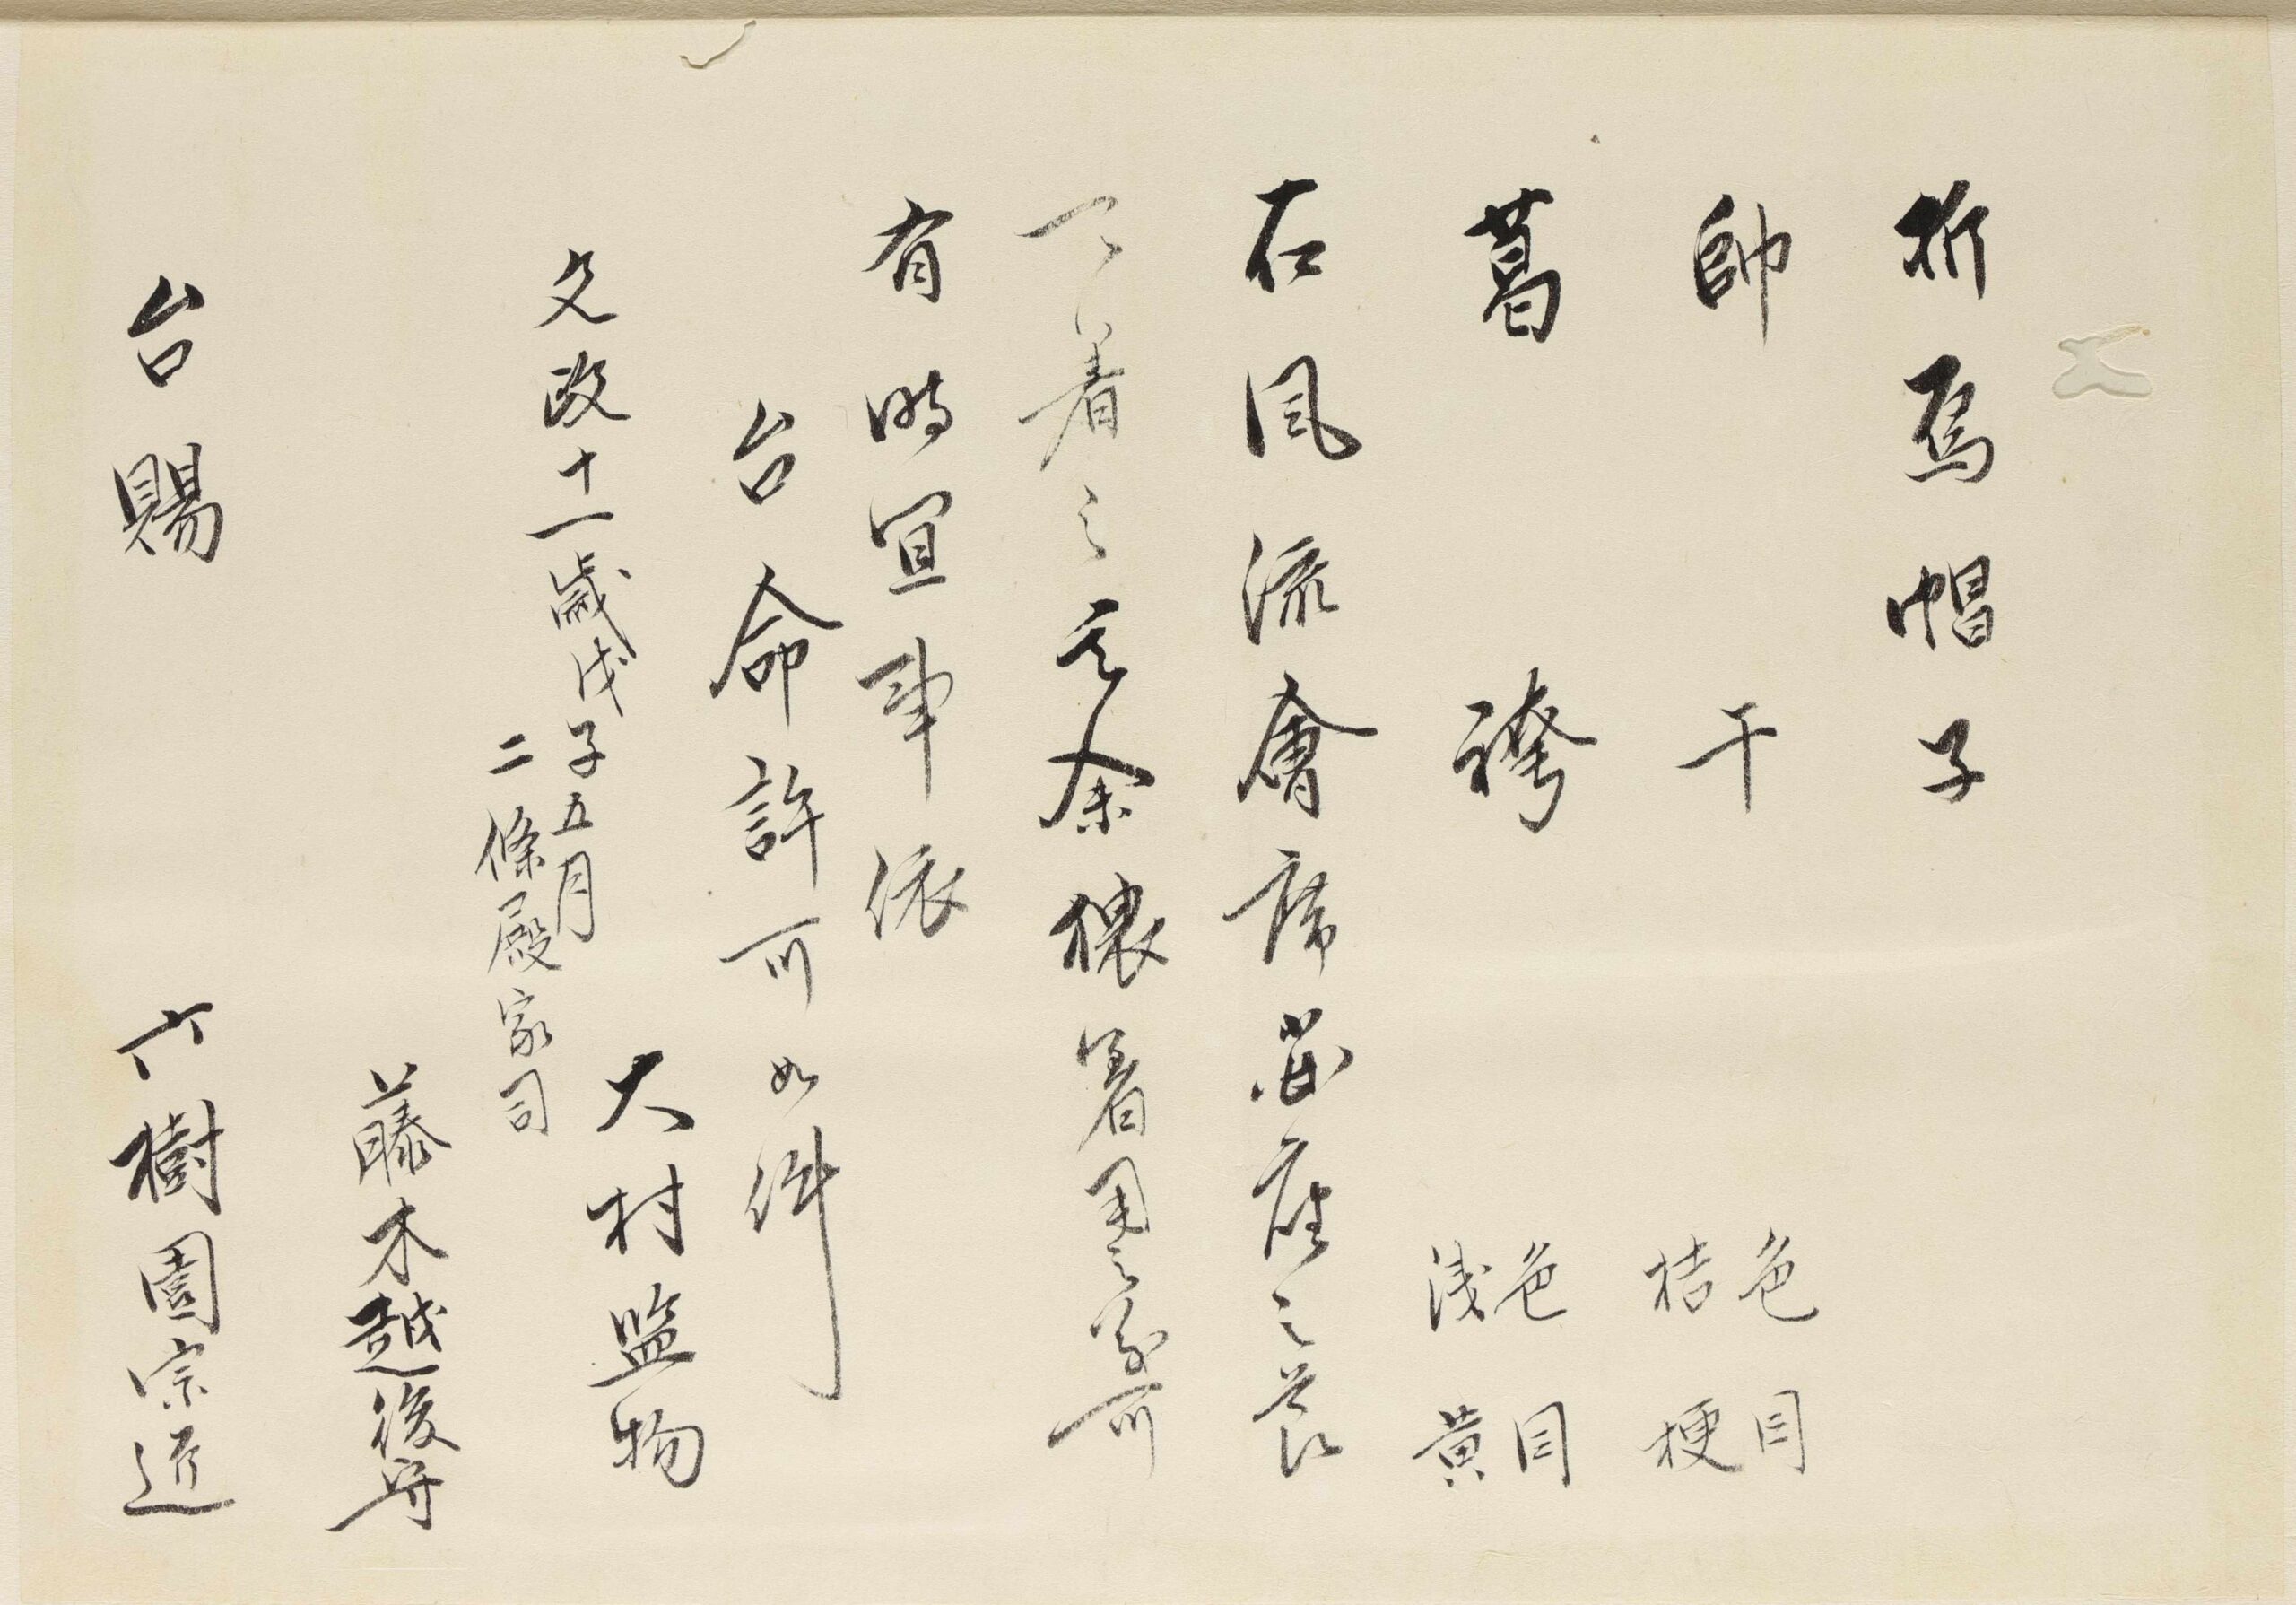 折烏帽子
帥干 色目 桔梗
葛袴 色目 浅黄
右風流會席出座之節
可著之其余猥著用之義可
有時宜事依
台命許可如件
大村監物
文政十一歳戊子五月
二條殿家司
藤木越後守
台賜 六樹園宗匠